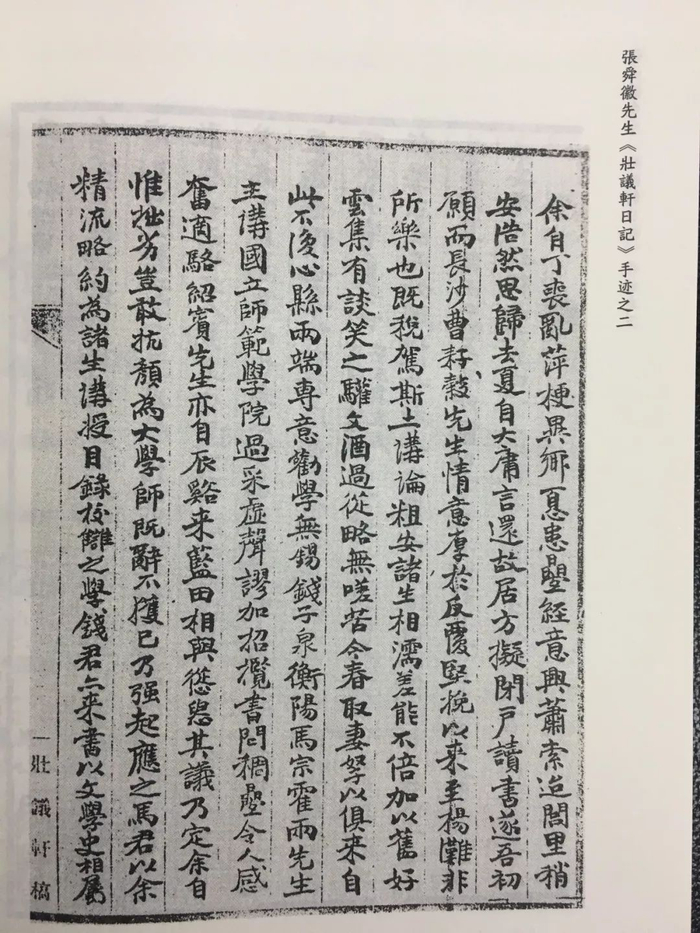 張舜徽先生《壯議軒日記》手迹之二
余自丁喪亂萍梗異鄉憂患疊經意興蕭索迨閭里稍
安浩然思歸去夏自大庸言還故居方擬閉戶讀書遂吾初
願而長沙曹籽穀先生情意厚於反覆堅挽以來至楊灘非
所樂也既稅駕斯土講論粗安諸生相濡差能不倍加以舊好
雲集有談笑之驩文酒過從略無嗟苦今春取妻孥以俱來自
此不復心縣兩端專意勸學無錫錢子泉衡陽馬宗霍兩先生
主講國立師範學院過采虛聲謬加招攬書問稠疊令人感
奮適駱紹賓先生亦自辰谿來藍田相與慫恿其議乃定余自
惟拙劣豈敢抗顏為大學師既辭不獲已乃強起應之馬君以余
精流略約為諸生講授目錄校讎之學錢君亦來書以文學史相屬
壯議軒稿